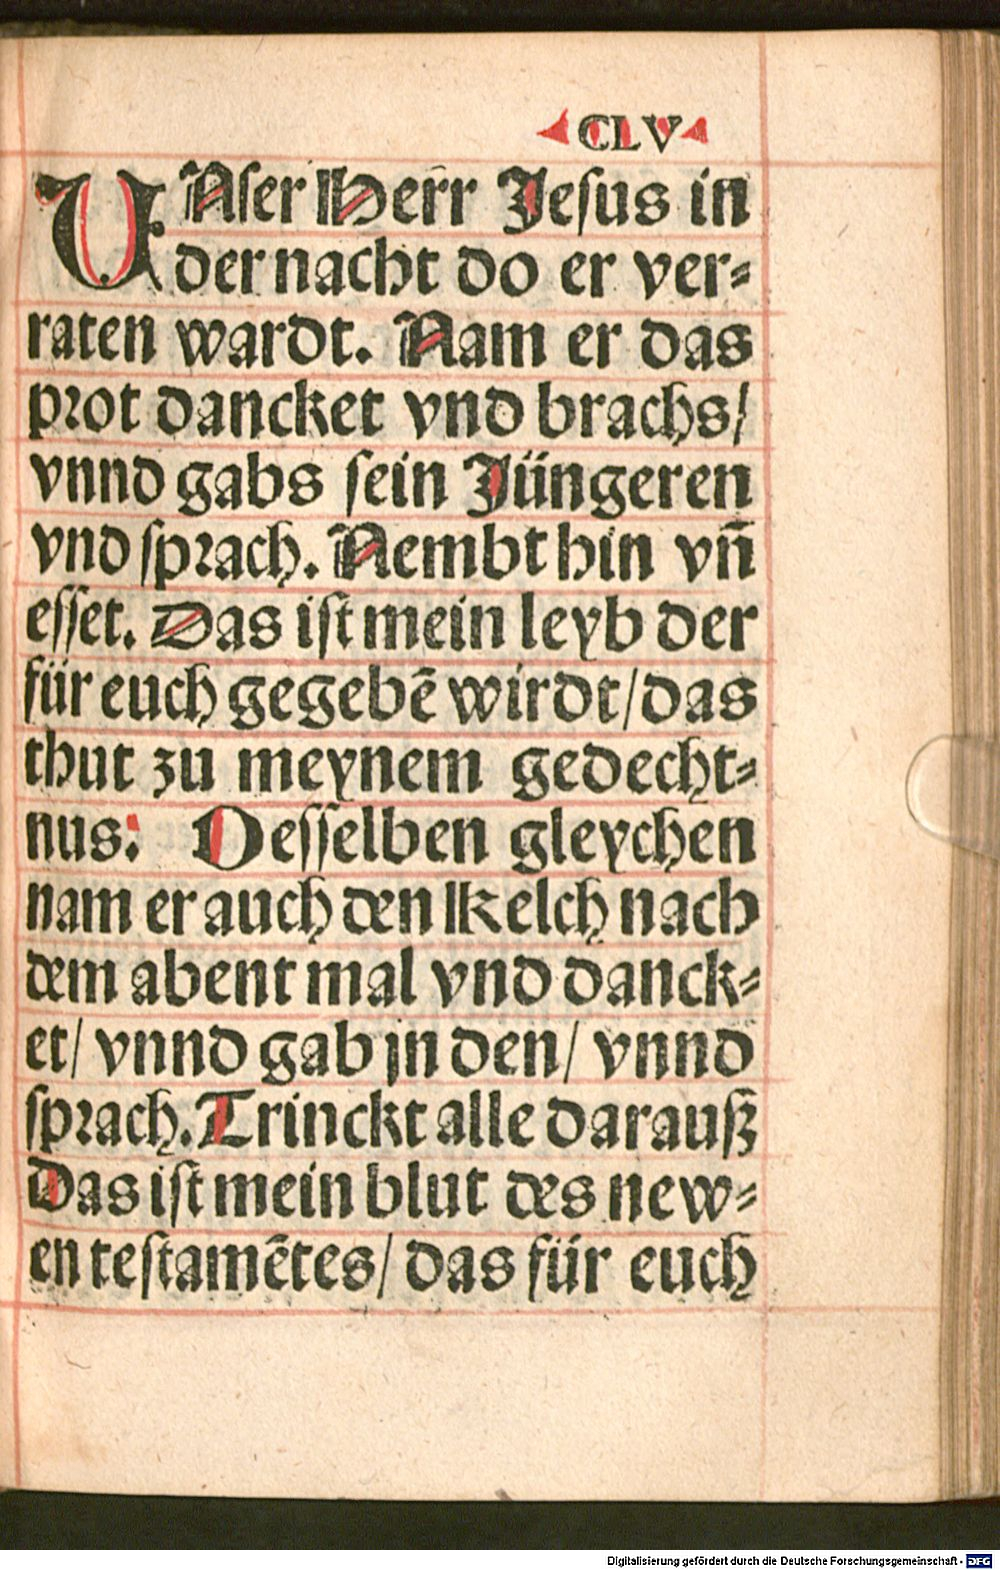 CLV
VNser Herr Jesus in
der nacht do er ver⸗
raten wardt. Nam er das
prot dancket vnd brachs/
vnnd gabs sein Jüngeren
vnd sprach. Nembt hin vñ
esset. Das ist mein leyb der
für euch gegebē wirdt/das
thut zu meynem gedecht⸗
nus: Desselben gleychen
nam er auch den Kelch nach
dem abent mal vnd danck⸗
et/ vnnd gab jn den/ vnnd
sprach. Trinckt alle darauß
Das ist mein blut des new⸗
en testamētes/ das für euch
Digitalisierung gefördert durch die Deutsche Forschungsgemeinschaft - DFG